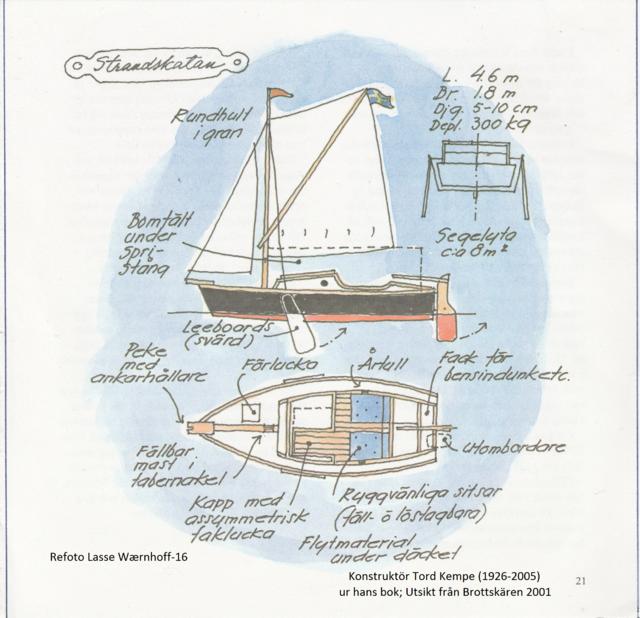 Strandskatan
L. 4.6 m
Br. 1.8 m
Djg. 5-10 cm
Depl. 300 kg
Rundhult
i gran
Bomtält
under
spri-
stång
Segelyta
c:a 8 m²
Leeboards
(svärd)
Peke
med
ankarhållare
Förlucka
Årtull
Fack för
bensindunk etc.
Fällbar
mast i
tabernakel
Utombordare
Kapp med
assymmetrisk
taklucka
Ryggvänliga sitsar
(fäll- o löstagbara)
Flytmaterial
under däcket
Refoto Lasse Wærnhoff-16
Konstruktör Tord Kempe (1926-2005)
ur hans bok; Utsikt från Brottskären 2001
21